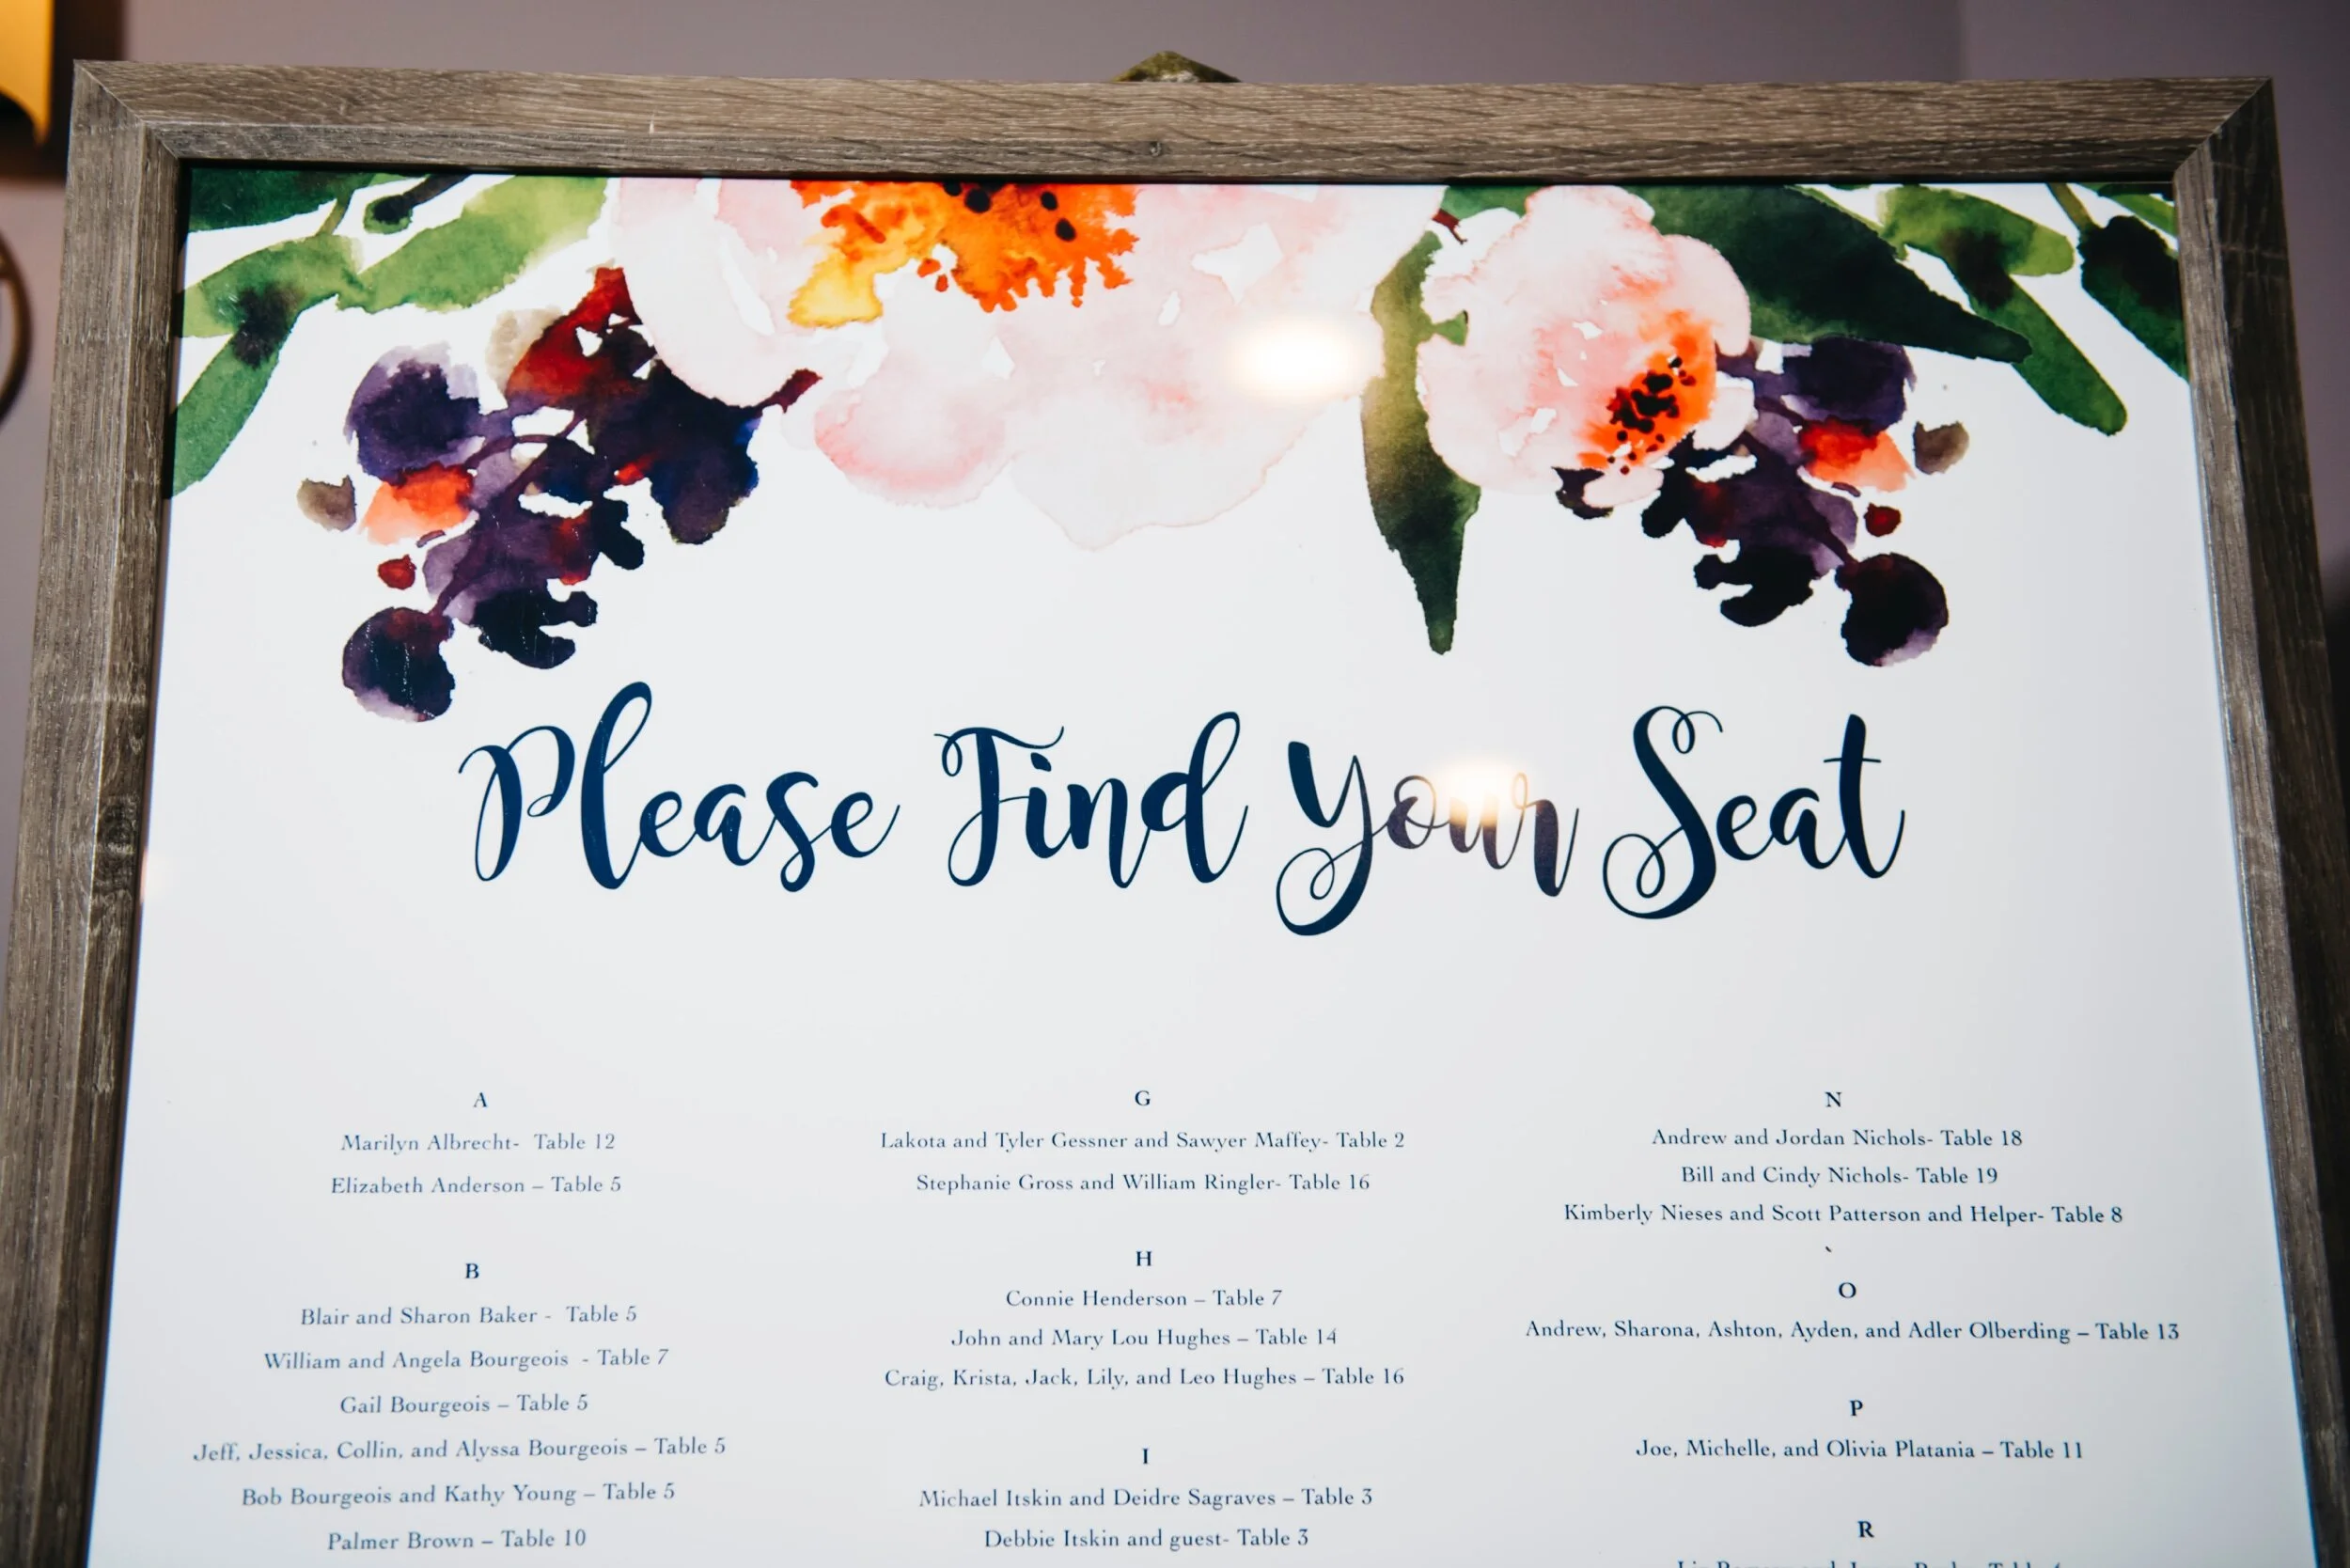 Please Find Your Seat
A
Marilyn Albrecht-  Table 12
Elizabeth Anderson – Table 5
B
Blair and Sharon Baker -  Table 5
William and Angela Bourgeois  - Table 7
Gail Bourgeois – Table 5
Jeff, Jessica, Collin, and Alyssa Bourgeois – Table 5
Bob Bourgeois and Kathy Young – Table 5
Palmer Brown – Table 10
G
Lakota and Tyler Gessner and Sawyer Maffey- Table 2
Stephanie Gross and William Ringler- Table 16
H
Connie Henderson – Table 7
John and Mary Lou Hughes – Table 14
Craig, Krista, Jack, Lily, and Leo Hughes – Table 16
I
Michael Itskin and Deidre Sagraves – Table 3
Debbie Itskin and guest- Table 3
N
Andrew and Jordan Nichols- Table 18
Bill and Cindy Nichols- Table 19
Kimberly Nieses and Scott Patterson and Helper- Table 8
`
O
Andrew, Sharona, Ashton, Ayden, and Adler Olberding – Table 13
P
Joe, Michelle, and Olivia Platania – Table 11
R